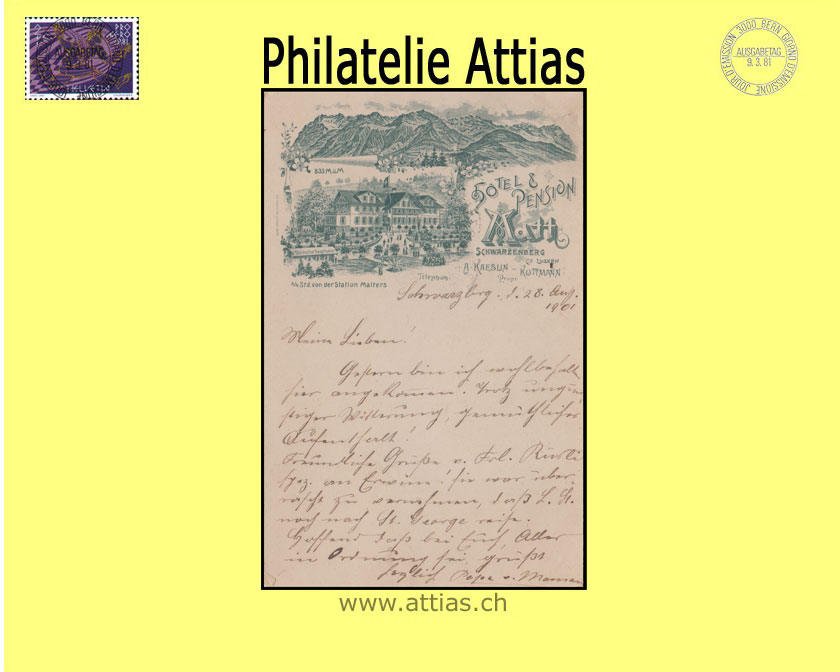 PRO
AUSGABETAG
9.3.81
HELVETIA
Philatelie Attias
JOUR D'EMISSION 3000 BERN GIORNO D'EMISSIONE
AUSGABETAG
9.3.81
833 M.ü.M.
HÔTEL &
PENSION
SCHWARZENBERG
Ct. LUZERN
A. KAESLIN - KOTTMANN
Propr.
Telephon.
Std. von der Station Malters
Schwarzbrg. d. 28. Aug.
1901
Meine Lieben!
Gestern bin ich wohlbehalt.
hier angekommen. Trotz ungün-
stiger Witterung, gemüthlicher
Aufenthalt!
Freundliche Grüße v. Frl.
spez. an Erwine! sie war über-
rascht zu vernehmen, daß L. St.
noch nach St. George reise.
Hoffend daß bei Euch, Alles
in Ordnung sei, grüßt
herzlich Papa u. Maman
www.attias.ch